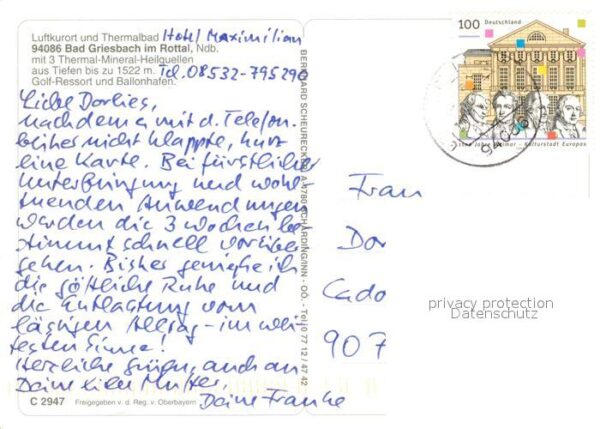 Luftkurort und Thermalbad Hotel Maximilian
94086 Bad Griesbach im Rottal, Ndb.
mit 3 Thermal-Mineral-Heilquellen
aus Tiefen bis zu 1522 m. Tel. 08532-795290
Golf-Ressort und Ballonhafen.
Liebe Dorlies,
nachdem es mit d. Telefon.
bisher nicht klappte, kurz
eine Karte. Bei fürstlicher
Unterbringung und wohl-
tuenden Anwendungen
werden die 3 Wochen be
stimmt schnell vorüber
gehen. Bisher genieße ich
die göttliche Ruhe und
die Entlastung vom
lästigen Alltag - im wei-
testen Sinne!
Herzliche Grüße, auch an
Deine liebe Mutter,
Deine Frauke
C 2947 Freigegeben v. d. Reg. v. Oberbayern
BERNHARD SCHEURECKER A-4780 SCHÄRDING/INN - OÖ. - Tel 0 77 12 / 47 42
100 Deutschland
Jahre Weimar - Kulturstadt Europas
94086
Frau
Dor
Cado
907
privacy protection
Datenschutz